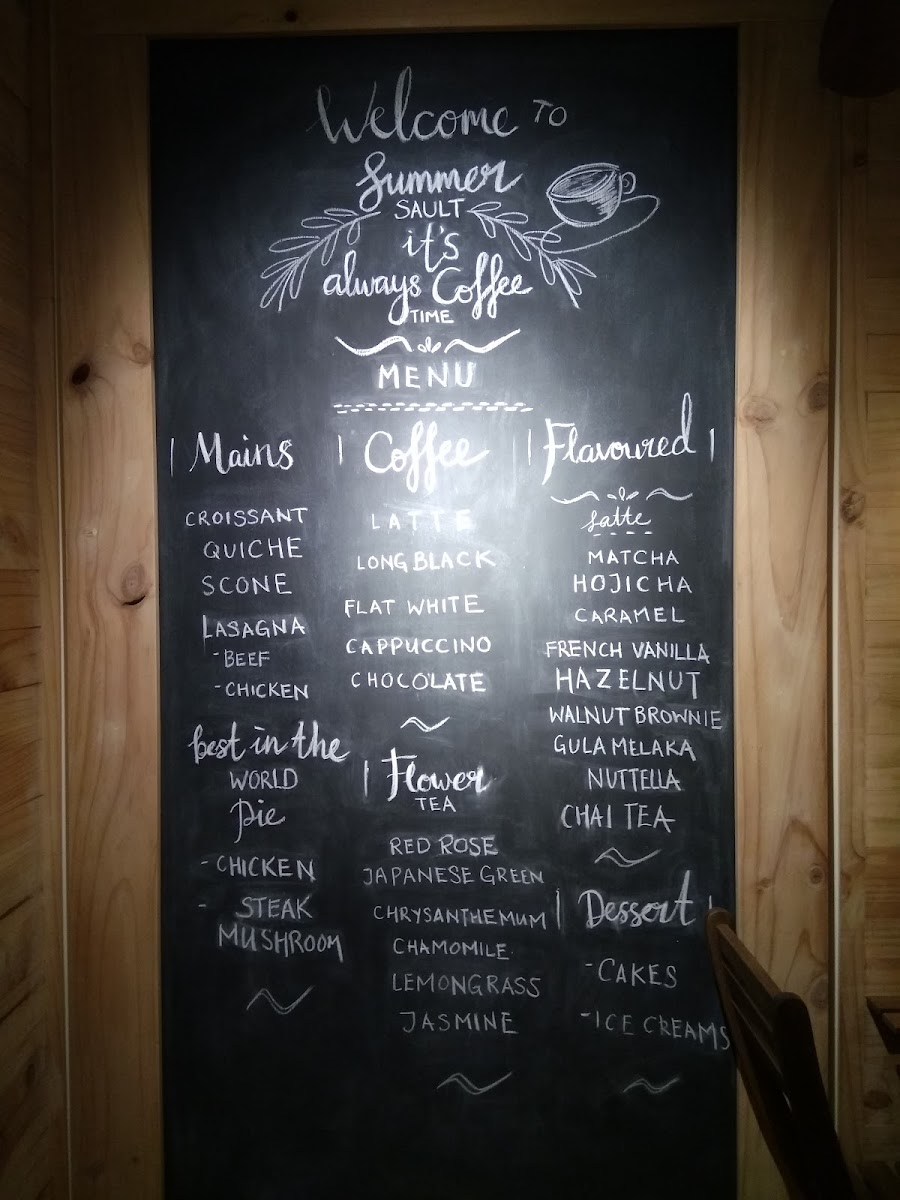 Welcome TO
Summer
SAULT
it's
always Coffee
TIME
MENU
Mains
CROISSANT
QUICHE
SCONE
LASAGNA
-BEEF
-CHICKEN
best in the
WORLD
Pie
-CHICKEN
- STEAK
MUSHROOM
Coffee
LATTE
LONG BLACK
FLAT WHITE
CAPPUCCINO
CHOCOLATE
Flower
TEA
RED ROSE
JAPANESE GREEN
CHRYSANTHEMUM
CHAMOMILE
LEMONGRASS
JASMINE
Flavoured
latte
MATCHA
HOJICHA
CARAMEL
FRENCH VANILLA
HAZELNUT
WALNUT BROWNIE
GULA MELAKA
NUTTELLA
CHAI TEA
Dessert
-CAKES
-ICE CREAMS